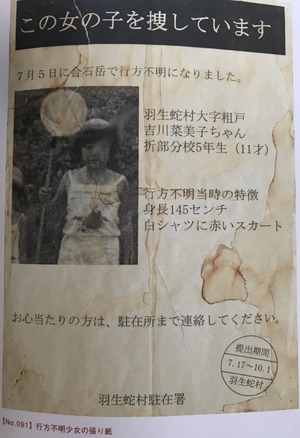 この女の子を捜しています
7月5日に合石岳で行方不明になりました。
羽生蛇村大字粗戸
吉川菜美子ちゃん
折部分校5年生（11才）
行方不明当時の特徴
身長145センチ
白シャツに赤いスカート
お心当たりの方は、駐在所まで連絡してください。
提出期間
7.17〜10.1
羽生蛇村
羽生蛇村駐在署
【No.091】行方不明少女の張り紙